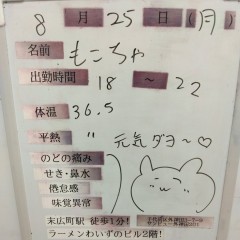 8月25日(月)
名前 もこちゃ
出勤時間 18～22
体温 36.5
平熱 〃 元気ダヨ～♡
のどの痛み
せき・鼻水
倦怠感
味覚異常
末広町駅 徒歩1分!
ラーメンわいずのビル2階!